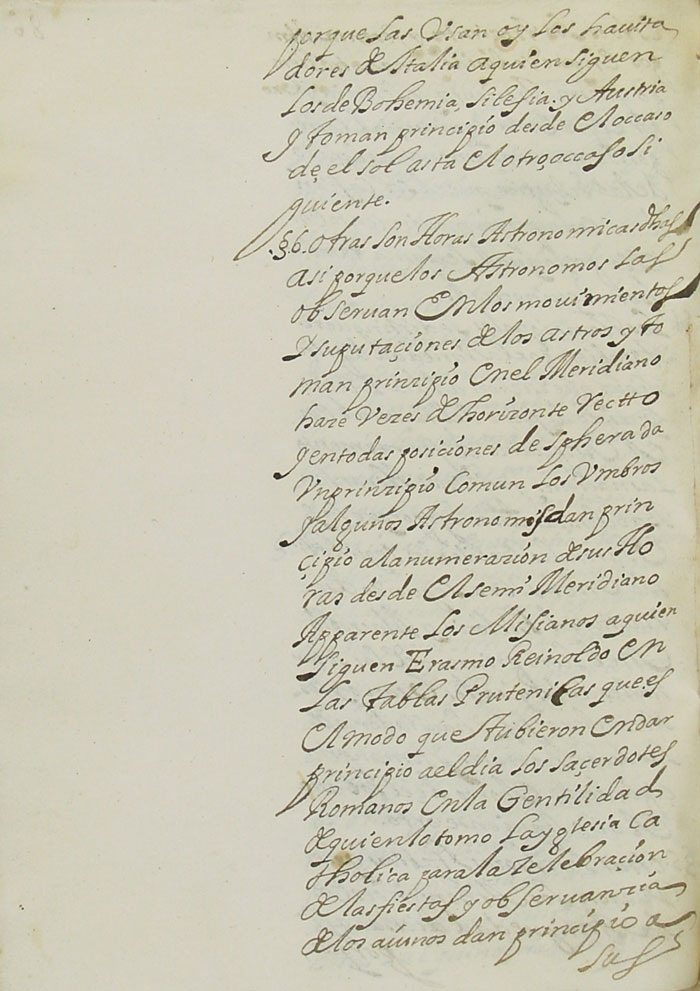 porque las Vsan oy los hauita
dores de Italia a quien siguen
los de Bohemia, Silesia. y Austria
y toman principio desde el occaso
de el sol asta el otro occaso si
guiente.
§.6. Otras son Horas Astronomicas dhas
asi porque los Astronomos las
obseruan en los mouimientos
y suputaçiones de los astros y to
man prinzipio en el Meridiano
haze Vezes de horizonte Recto
y en todas posiciones de sphera da
Vn prinzipio comun los Vmbros
y algunos Astronomos dan prin
çipio a la numerazion de sus Ho
ras desde el semi Meridiano
Apparente los Misianos a quien
siguen Erasmo Reinoldo en
las Tablas Prutenicas que es
el modo que stubieron en dar
principio a el dia los saçerdotes
Romanos en la Gentilidad
de quien lo tomo la yglesia Ca
tholica para la zelebraçion
de las fiestas y obseruanzia
de los aiunos dan prinçipio a
sus